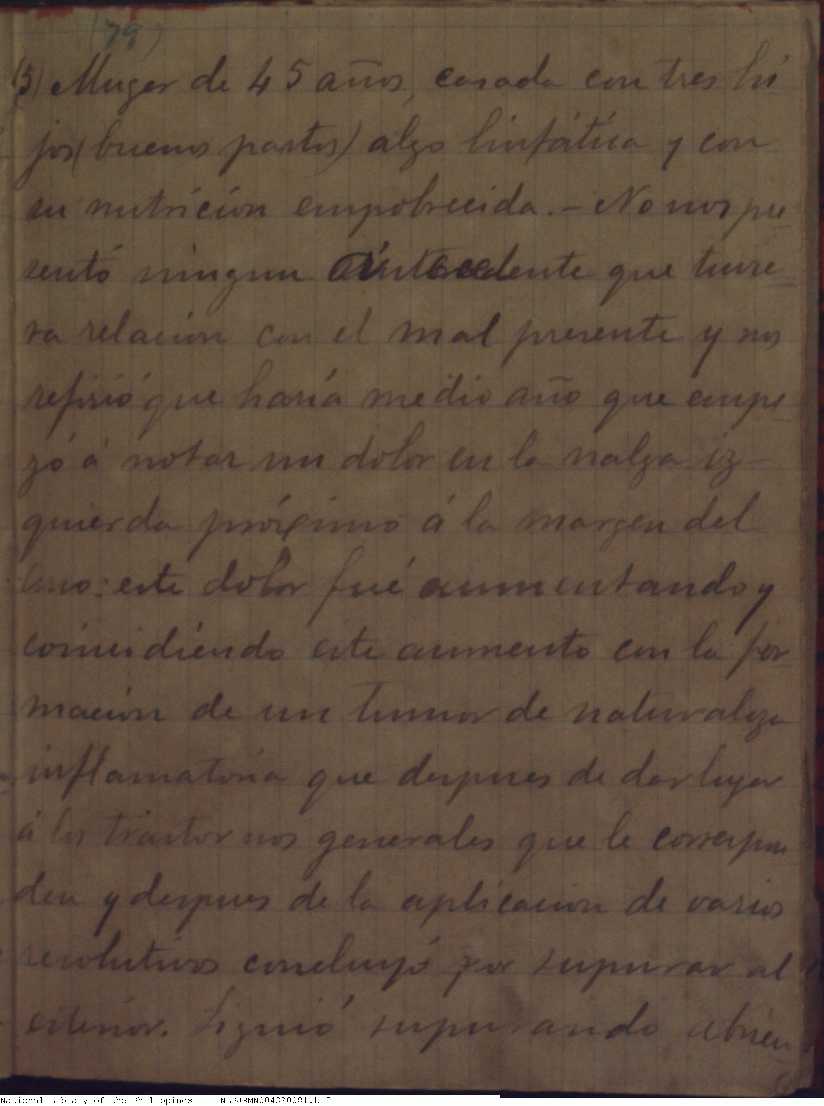 (79)
(5) Muger de 45 años, casada con tres hi-
jos (buenos partos) algo linfática y con
su nutrición empobrecida. — No nos pre-
sentó ningun antecedente que tuvie-
ra relacion con el mal presente y nos
refirió que haría medio año que empe-
zó á notar un dolor en la nalga iz-
quierda próximo á la margen del
ano: este dolor fué aumentando y
coincidiendo este aumento con la for-
mación de un tumor de naturaleza
inflamatoria que despues de dar lugar
á los trastornos generales que le correspon
den y despues de la aplicacion de varios
resolutivos concluyó por supurar al
exterior. Siguió supurando
National Library of the Philippines